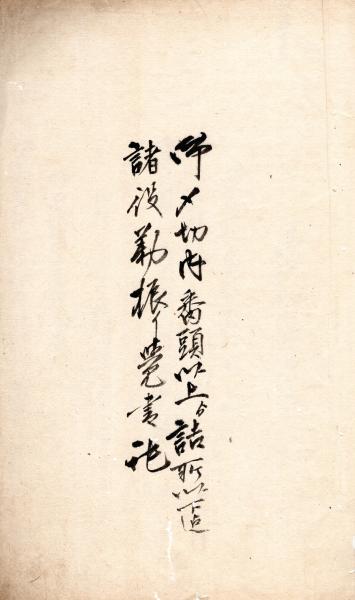 御〆切内番頭以上ゟ詰所以下迄
諸役勤振り覚書